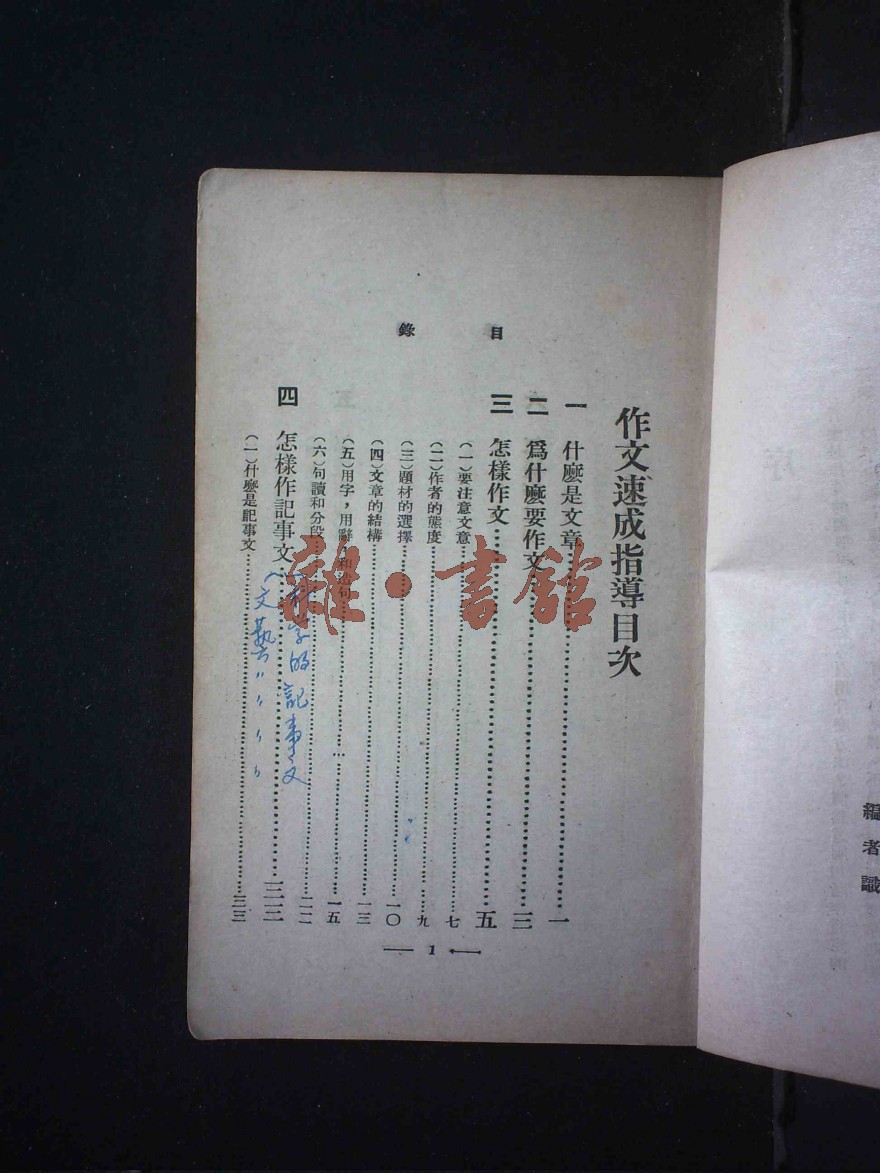 編者識
作文速成指導目次
目錄
一 什麼是文章 一
二 爲什麼要作文 三
三 怎樣作文 五
(一)要注意文意 七
(二)作者的態度 九
(三)題材的選擇 一〇
(四)文章的結構 一三
(五)用字，用辭，和造句 一五
(六)句讀和分段 二二
四 怎樣作記事文 三二
科学的記事文
文藝〃〃〃〃
(一)什麼是記事文 三三
— 1 —
雜·書館